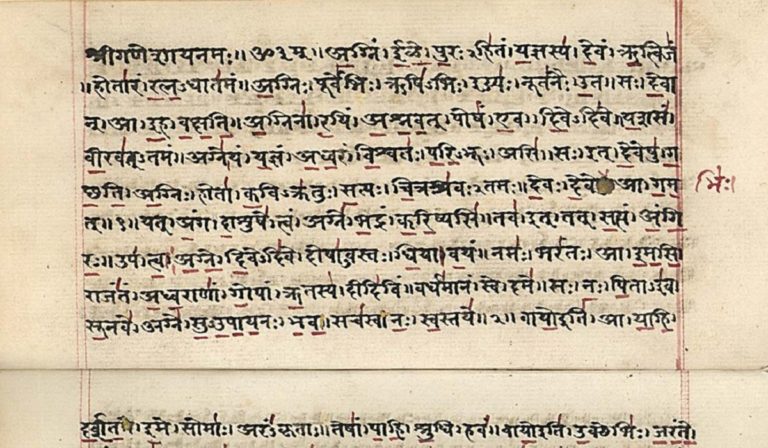 श्रीगणेशायनमः॥ ॐ३म्॥ अग्निं। ईळे। पुरःऽहितं। यज्ञस्य। देवं। ऋत्विजं
॥होतारं। रत्नऽधातमं॥ अग्निः। पूर्वेभिः। ऋषिऽभिः। ईड्यः। नूतनैः। उत। सः। देवा
न्। आ। इह। वक्षति॥ अग्निना। रयिं। अश्नवत्। पोषं। एव। दिवेऽदिवे। यशसं
वीरवत्ऽतमं॥ अग्ने। यं। यज्ञं। अध्वरं। विश्वतः। परिऽभूः। असि। सः। इत्। देवेषु। ग
च्छति। अग्निः। होता। कविऽक्रतुः। सत्यः। चित्रश्रवःऽतमः॥ देवः। देवे। आ। गम
भिः।
त्॥१॥ यत्। अंग। दाशुषे। त्वं। अग्ने। भद्रं। करिष्यसि॥ तव। इत्। तत्। सत्यं। अंगि
रः॥ उप। त्वा। अग्ने। दिवेऽदिवे। दोषाऽवस्तः। धिया। वयं॥ नमः। भरंतः। आ। इमसि
राजंतं। अध्वराणां। गोपां। ऋतस्य। दीदिविं॥ वर्धमानं। स्वे। दमे॥ सः। नः। पिताऽइव
सूनवे। अग्ने। सुऽउपायनः। भव॥ सचस्व। नः। स्वस्तये॥२॥ वायो इति। आ। याहि।
दर्शत। इमे। सोमाः। अरंऽकृताः॥ तेषां। पाहि। श्रुधि। हवं॥ वायो इति। उक्थेभिः। जरंते।